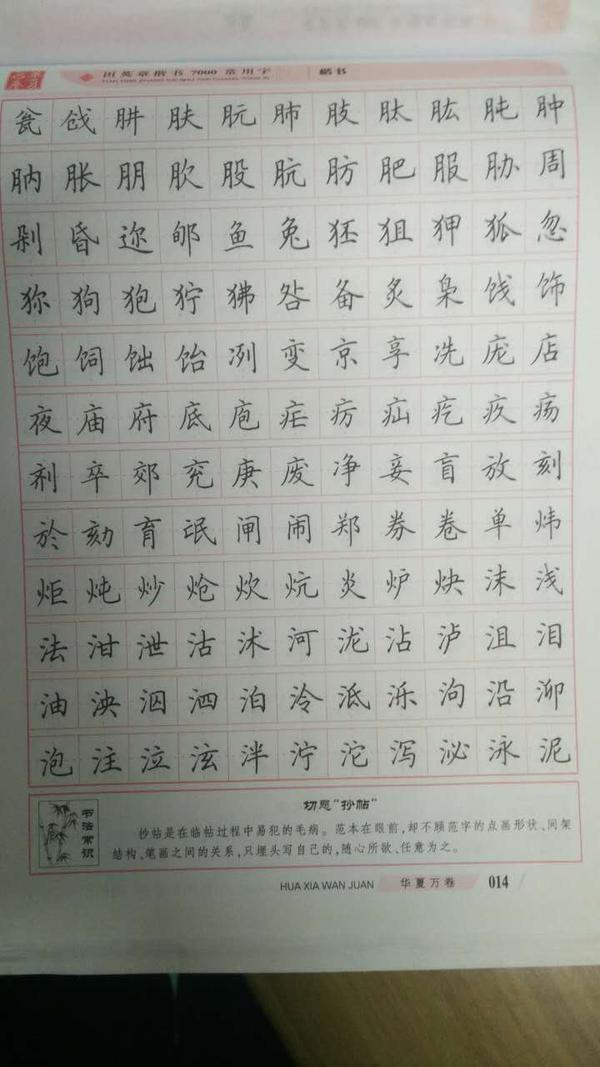 田英章楷书7000常用字 楷书
瓮 戗 肼 肤 朊 肺 肢 肽 肱 肫 肿
肭 胀 朋 肷 股 肮 肪 肥 服 胁 周
剁 昏 迩 郇 鱼 兔 狉 狙 狎 狐 忽
狝 狗 狍 狞 狒 咎 备 炙 枭 饯 饰
饱 饲 饳 饴 冽 变 京 享 冼 庞 店
夜 庙 府 底 庖 疟 疠 疝 疙 疚 疡
剂 卒 郊 兖 庚 废 净 妾 盲 放 刻
於 劾 育 氓 闸 闹 郑 券 卷 单 炜
炬 炖 炒 炝 炊 炕 炎 炉 炔 沫 浅
法 泔 泄 沽 沭 河 泷 沾 泸 沮 泪
油 泱 泅 泗 泊 泠 泜 泺 泃 沿 泖
泡 注 泣 泫 泮 泞 沱 泻 泌 泳 泥
书法常识
切忌“抄帖”
抄帖是在临帖过程中易犯的毛病。范本在眼前,却不顾范字的点画形状、间架
结构,笔画之间的关系,只埋头写自己的,随心所欲、任意为之。
HUA XIA WAN JUAN 华夏万卷 014